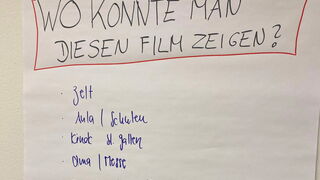 WO KÖNNTE MAN
DIESEN FILM ZEIGEN?
· Zelt
· Aula / Schulen
· Kinok St. Gallen
· Olma / Messe